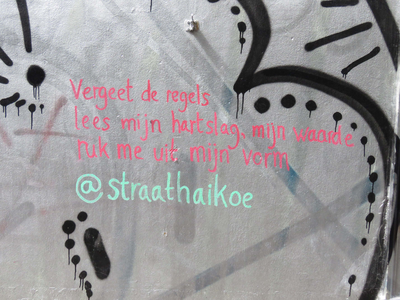 Vergeet de regels
lees mijn hartslag, mijn waarde
ruk me uit mijn vorm
@straathaikoe